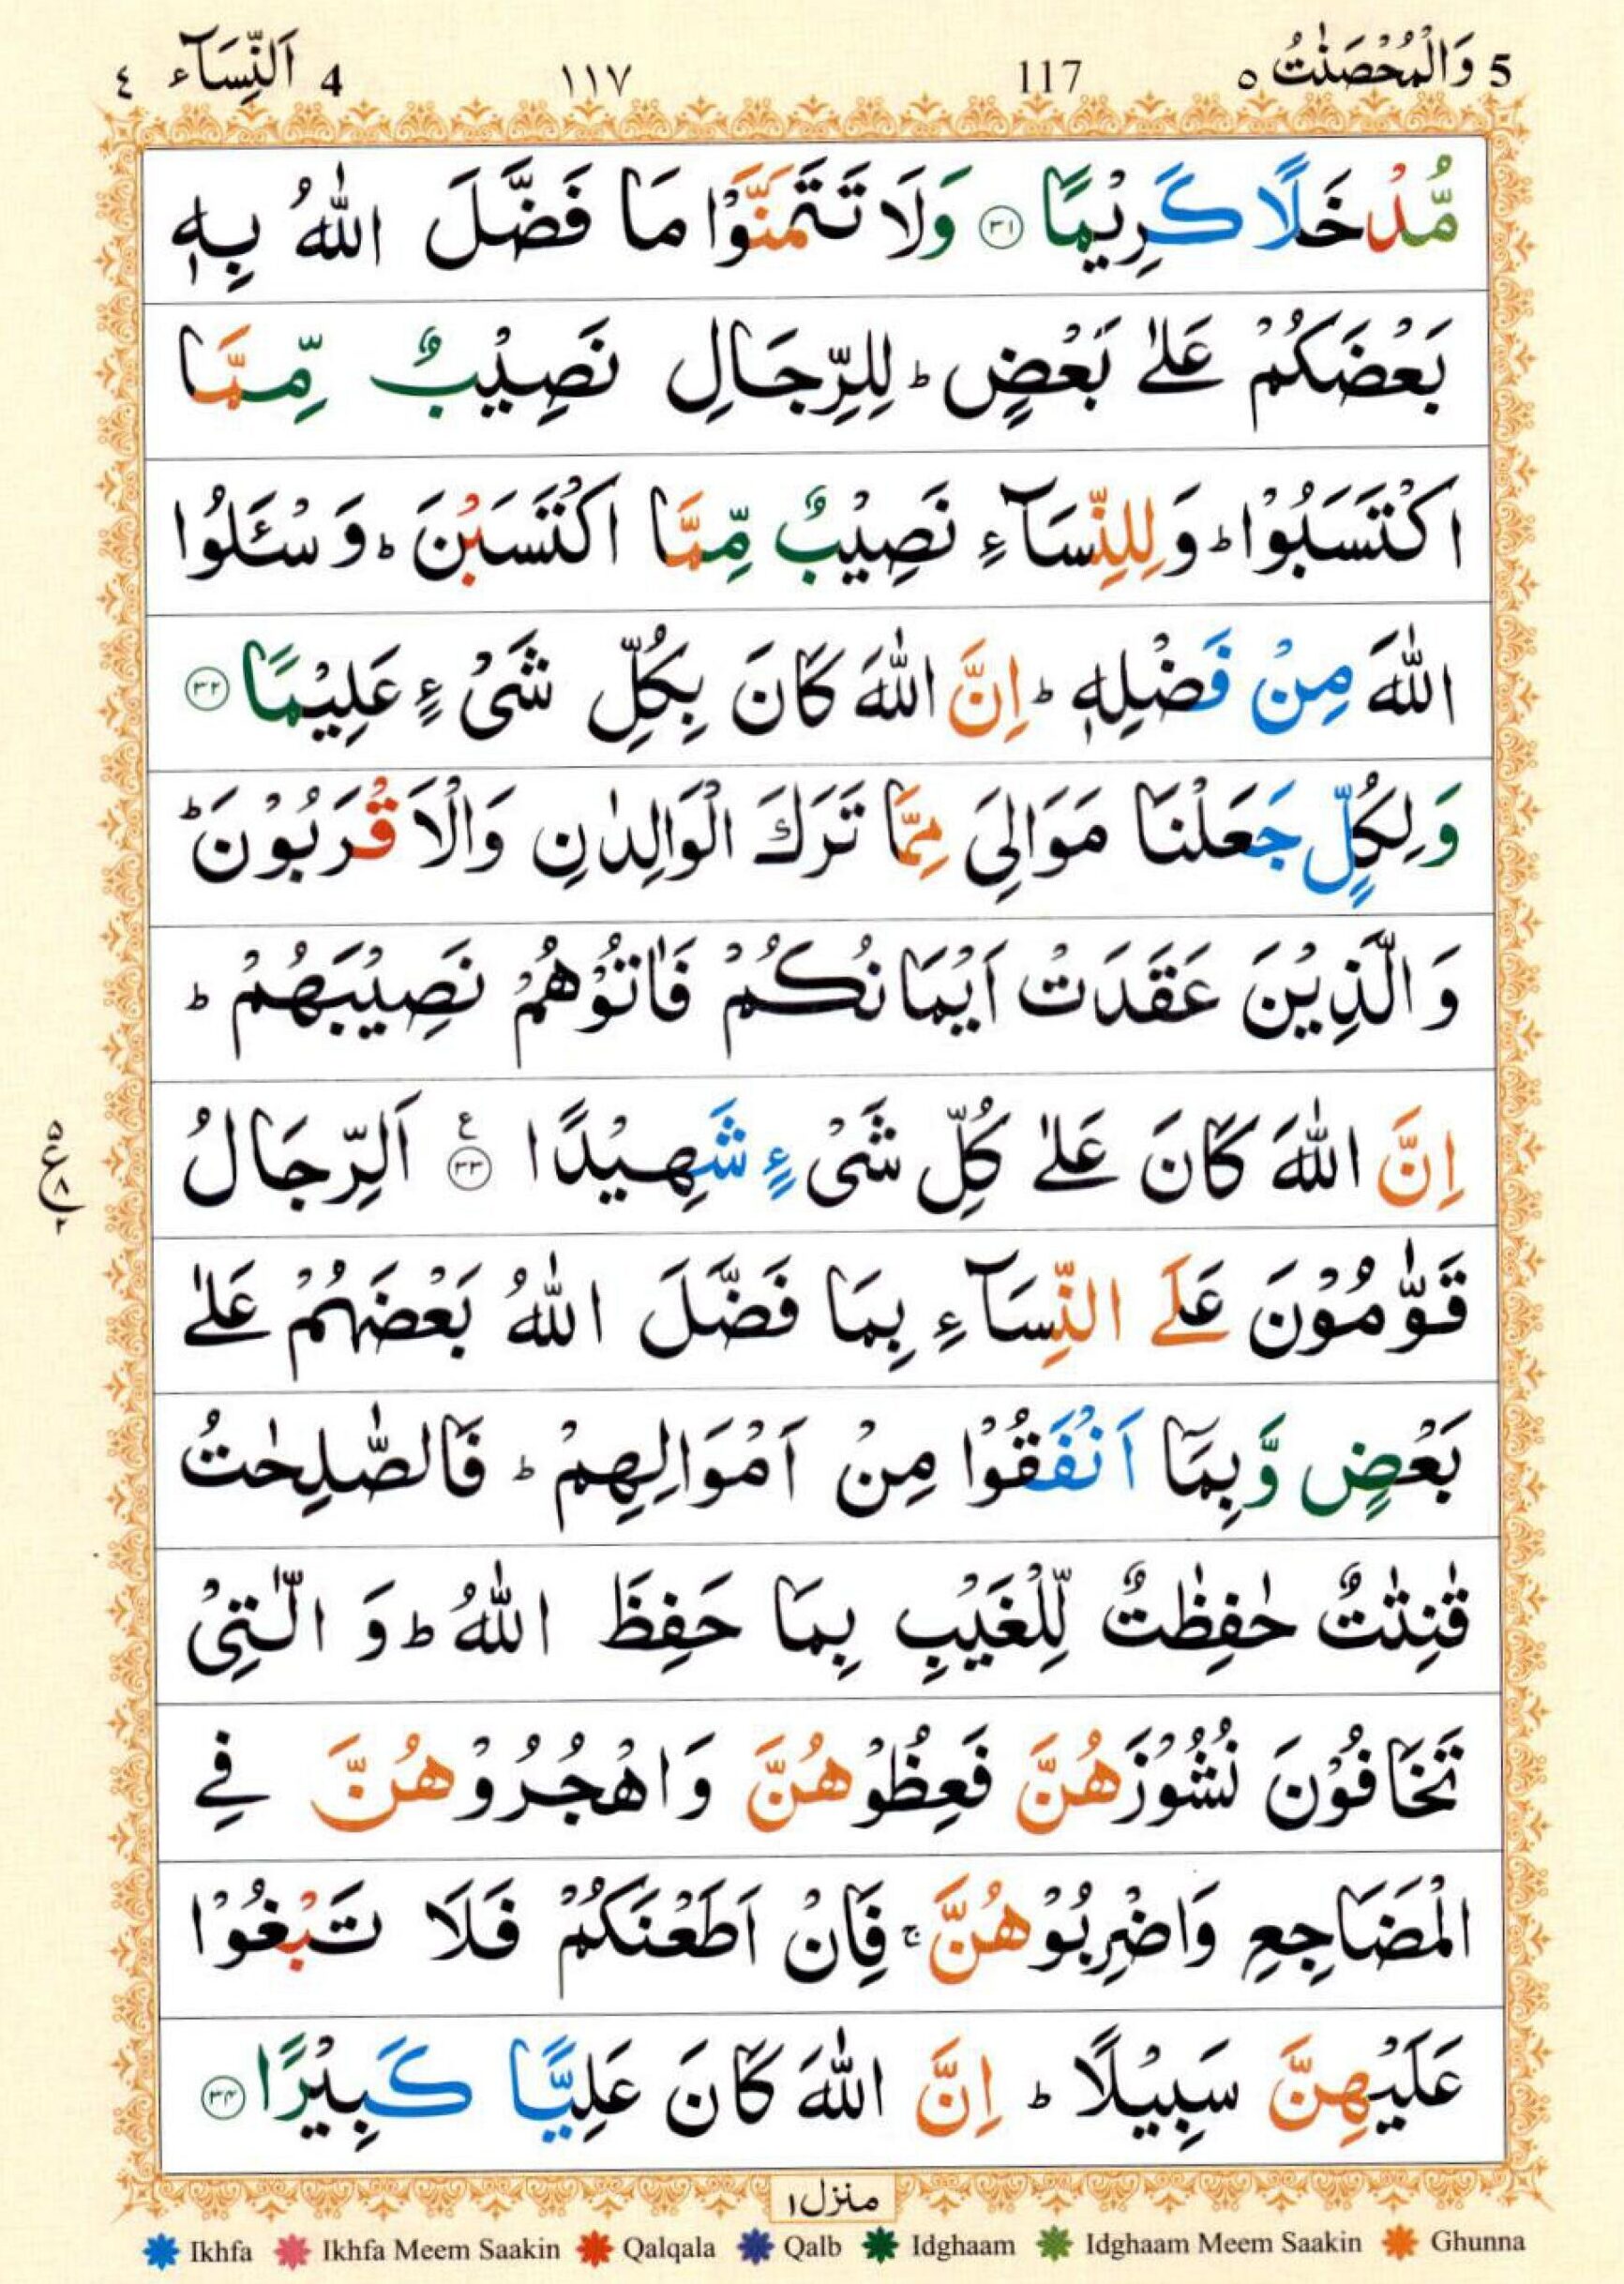 5 وَالْمُحْصَنٰتُ ٥ 117 ١١٧ 4 اَلنِّسَآء ٤
مُّدْخَلًا كَرِيْمًا ۝٣١ وَلَا تَتَمَنَّوْا مَا فَضَّلَ اللّٰهُ بِهٖ
بَعْضَكُمْ عَلٰى بَعْضٍ ؕ لِلرِّجَالِ نَصِيْبٌ مِّمَّا
اكْتَسَبُوْا ؕ وَلِلنِّسَآءِ نَصِيْبٌ مِّمَّا اكْتَسَبْنَ ؕ وَسْـَٔلُوا
اللّٰهَ مِنْ فَضْلِهٖ ؕ اِنَّ اللّٰهَ كَانَ بِكُلِّ شَىْءٍ عَلِيْمًا ۝٣٢
وَلِكُلٍّ جَعَلْنَا مَوَالِىَ مِمَّا تَرَكَ الْوَالِدٰنِ وَالْاَقْرَبُوْنَ ؕ
وَالَّذِيْنَ عَقَدَتْ اَيْمَانُكُمْ فَاٰتُوْهُمْ نَصِيْبَهُمْ ؕ
اِنَّ اللّٰهَ كَانَ عَلٰى كُلِّ شَىْءٍ شَهِيْدًا ۝٣٣ ع اَلرِّجَالُ
٥ ع ٨ ٢
قَوّٰمُوْنَ عَلَى النِّسَآءِ بِمَا فَضَّلَ اللّٰهُ بَعْضَهُمْ عَلٰى
بَعْضٍ وَّبِمَاۤ اَنْفَقُوْا مِنْ اَمْوَالِهِمْ ؕ فَالصّٰلِحٰتُ
قٰنِتٰتٌ حٰفِظٰتٌ لِّلْغَيْبِ بِمَا حَفِظَ اللّٰهُ ؕ وَالّٰتِىْ
تَخَافُوْنَ نُشُوْزَهُنَّ فَعِظُوْهُنَّ وَاهْجُرُوْهُنَّ فِى
الْمَضَاجِعِ وَاضْرِبُوْهُنَّ ۚ فَاِنْ اَطَعْنَكُمْ فَلَا تَبْغُوْا
عَلَيْهِنَّ سَبِيْلًا ؕ اِنَّ اللّٰهَ كَانَ عَلِيًّا كَبِيْرًا ۝٣٤
منزل ١
Ikhfa Ikhfa Meem Saakin Qalqala Qalb Idghaam Idghaam Meem Saakin Ghunna